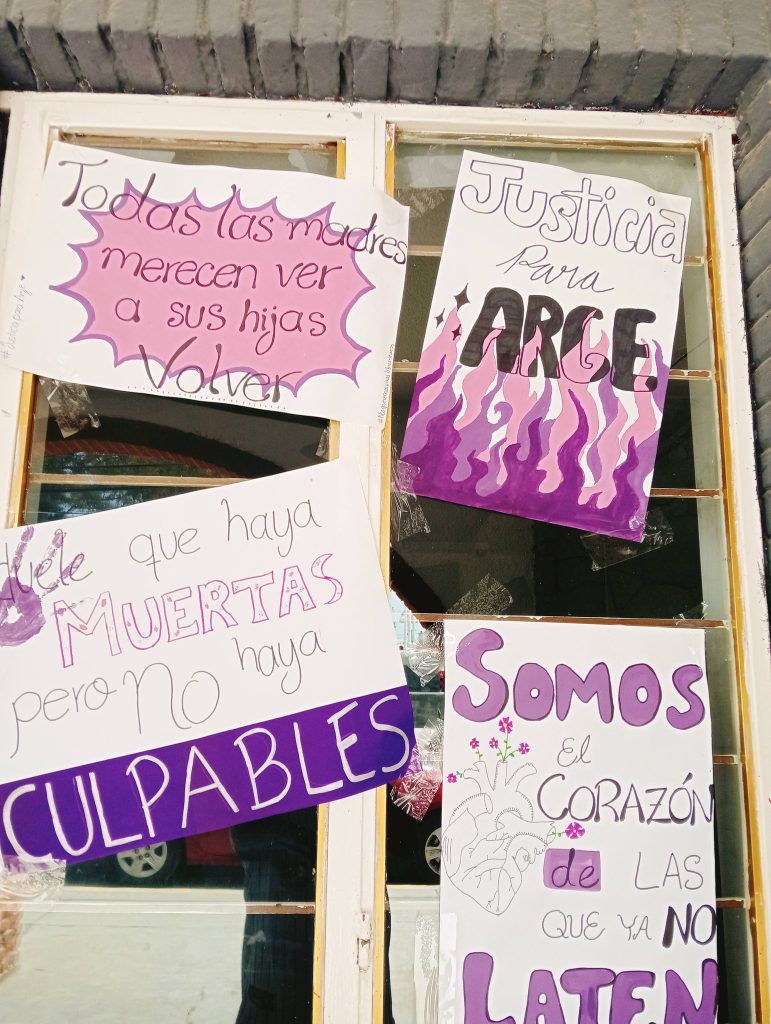 Todas las madres
merecen ver
a sus hijas
Volver
Justicia
Para
ARGE
duele que haya
MUERTAS
pero NO haya
CULPABLES
SOMOS
El
CORAZÓN
de LAS
QUE YA NO
LATEN